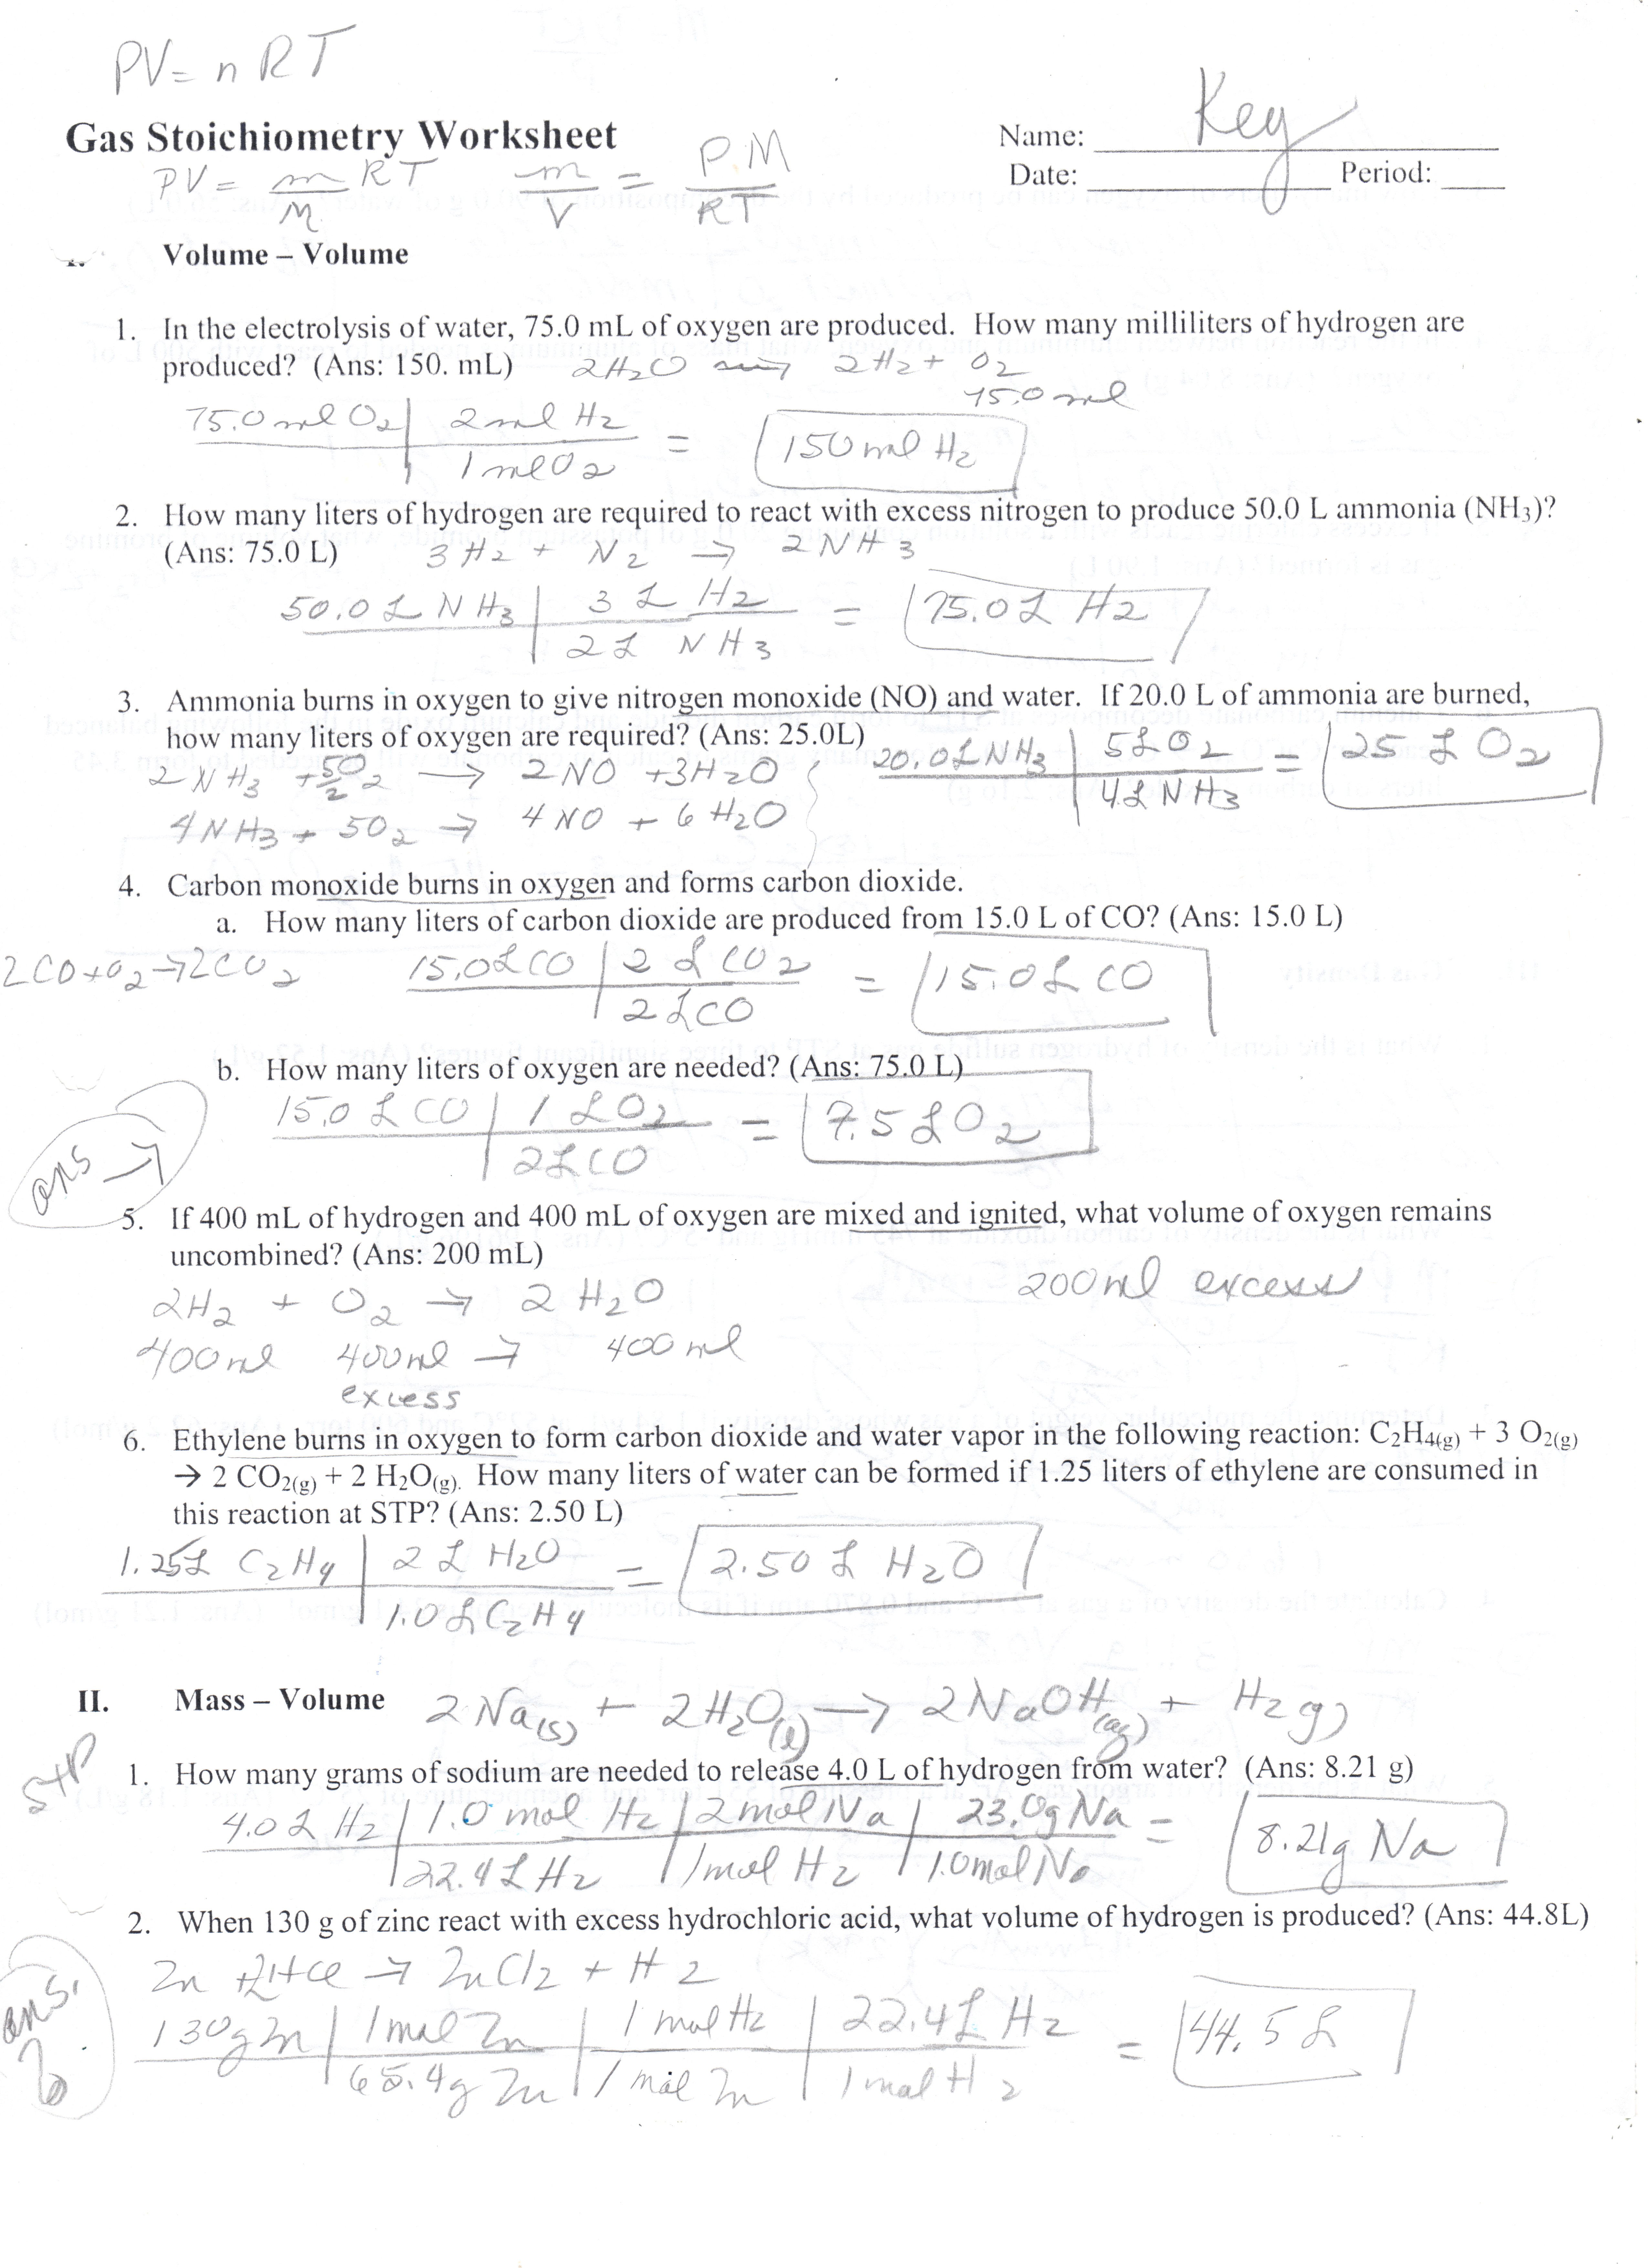 PV = nRT
Gas Stoichiometry Worksheet
Name: Key
Date: ________ Period: ____
PV = m/M RT   m/V = P.M/RT
Volume – Volume
1. In the electrolysis of water, 75.0 mL of oxygen are produced. How many milliliters of hydrogen are
produced? (Ans: 150. mL) 2H2O → 2H2 + O2
75.0 ml
75.0 ml O2 | 2 ml H2 = 150 ml H2
1 ml O2
2. How many liters of hydrogen are required to react with excess nitrogen to produce 50.0 L ammonia (NH3)?
(Ans: 75.0 L) 3 H2 + N2 → 2 NH3
50.0 L NH3 | 3 L H2 = 75.0 L H2
2 L NH3
3. Ammonia burns in oxygen to give nitrogen monoxide (NO) and water. If 20.0 L of ammonia are burned,
how many liters of oxygen are required? (Ans: 25.0L) 20.0 L NH3 | 5 L O2 = 25 L O2
4 L NH3
2 NH3 + 5/2 O2 → 2NO + 3H2O
4 NH3 + 5O2 → 4 NO + 6 H2O
4. Carbon monoxide burns in oxygen and forms carbon dioxide.
a. How many liters of carbon dioxide are produced from 15.0 L of CO? (Ans: 15.0 L)
2CO + O2 → 2CO2 15.0 L CO | 2 L CO2 = 15.0 L CO
2 L CO
b. How many liters of oxygen are needed? (Ans: 75.0 L)
15.0 L CO | 1 L O2 = 7.5 L O2
2 L CO
ans →
5. If 400 mL of hydrogen and 400 mL of oxygen are mixed and ignited, what volume of oxygen remains
uncombined? (Ans: 200 mL)
200 ml excess
2H2 + O2 → 2 H2O
400 ml 400 ml → 400 ml
excess
6. Ethylene burns in oxygen to form carbon dioxide and water vapor in the following reaction: C2H4(g) + 3 O2(g)
→ 2 CO2(g) + 2 H2O(g). How many liters of water can be formed if 1.25 liters of ethylene are consumed in
this reaction at STP? (Ans: 2.50 L)
1.25 L C2H4 | 2 L H2O = 2.50 L H2O
1.0 L C2H4
II. Mass – Volume 2Na(s) + 2H2O(l) → 2NaOH(aq) + H2(g)
STP
1. How many grams of sodium are needed to release 4.0 L of hydrogen from water? (Ans: 8.21 g)
4.0 L H2 | 1.0 mol H2 | 2 mol Na | 23.0g Na = 8.21g Na
22.4 L H2 | 1 mol H2 | 1.0 mol Na
2. When 130 g of zinc react with excess hydrochloric acid, what volume of hydrogen is produced? (Ans: 44.8L)
Zn + 2HCl → ZnCl2 + H2
ans.
130g Zn | 1 mol Zn | 1 mol H2 | 22.4 L H2 = 44.5 L
65.4g Zn | 1 mol Zn | 1 mol H2